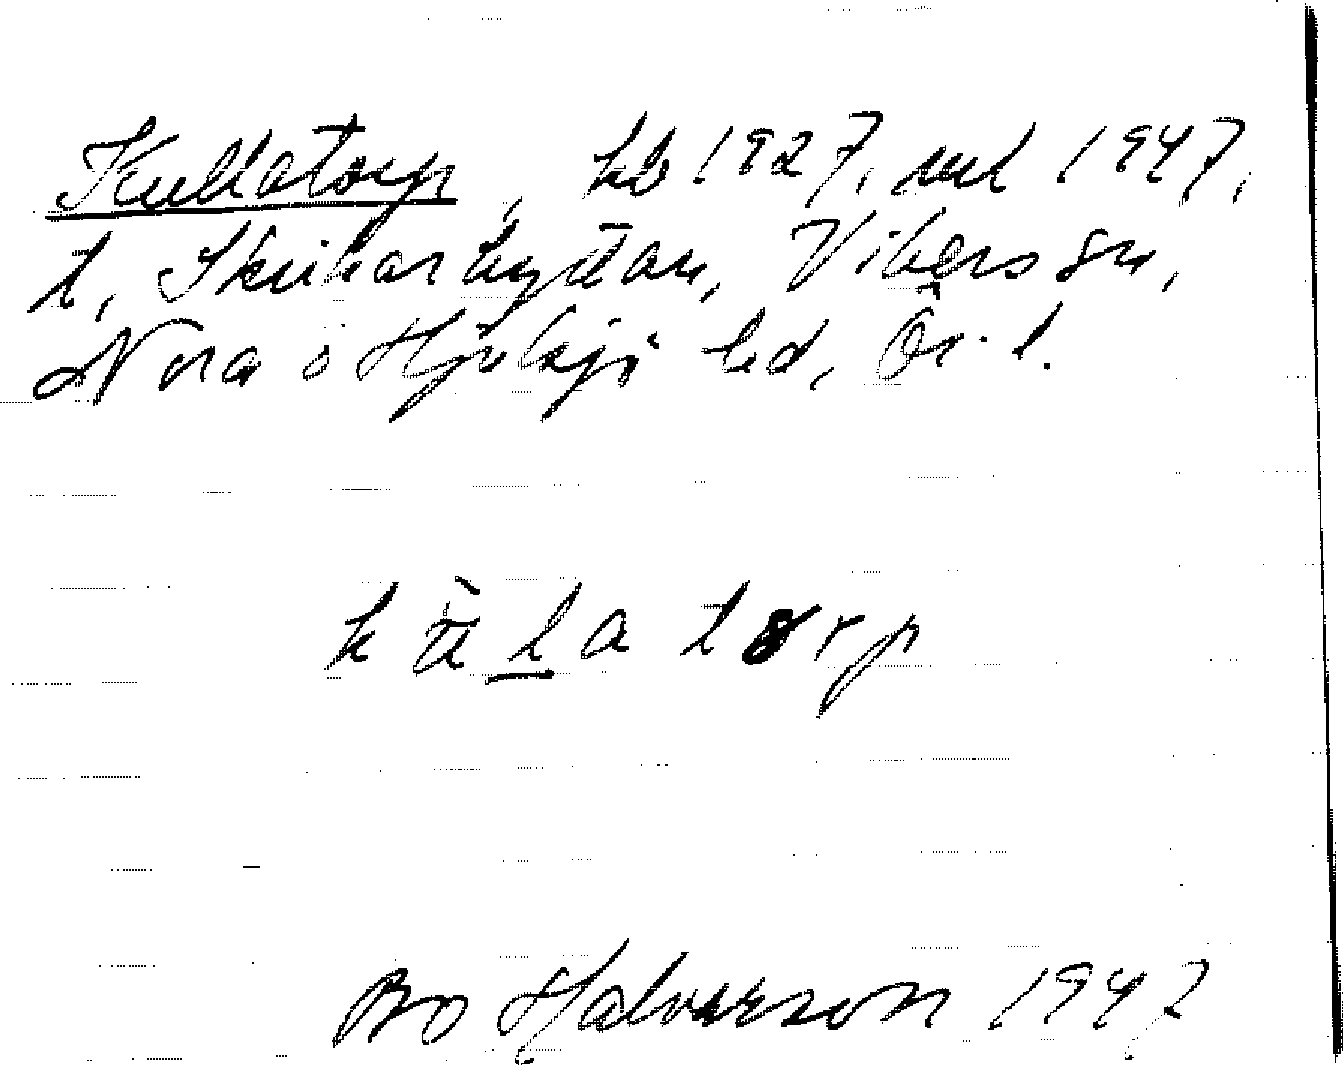 Kullatorp, hb 1927, uul 1947,
t, Skrikarhyttan, Vikers sn,
Nora o Hjulsjö bd, Ör. l.
k ù l a t o r p
Bo Halvarson 1947